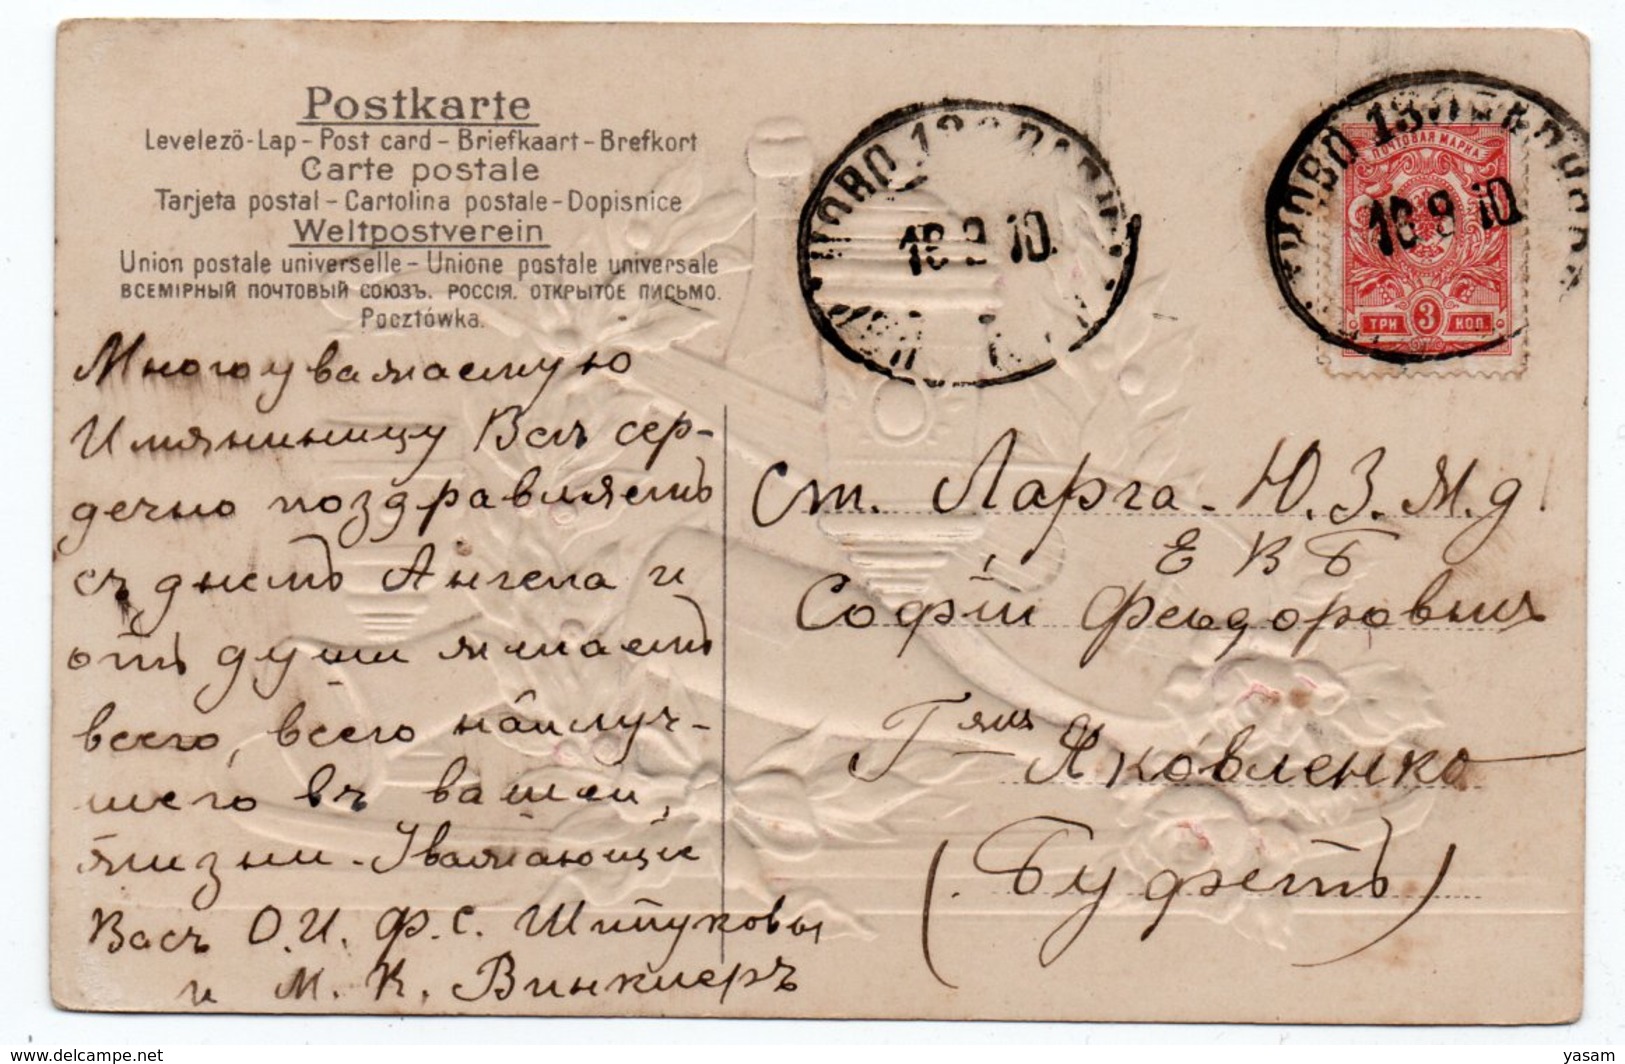 Postkarte
Levelező-Lap – Post card – Briefkaart – Brefkort
Carte postale
Tarjeta postal – Cartolina postale – Dopisnice
Weltpostverein
Union postale universelle – Unione postale universale
ВСЕМІРНЫЙ ПОЧТОВЫЙ СОЮЗЪ. РОССІЯ. ОТКРЫТОЕ ПИСЬМО.
Pocztówka.
Многоуважаемую
Имянинницу Васъ сер-
дечно поздравляемъ
съ днемъ Ангела и
отъ души желаемъ
всего, всего наилуч-
шего въ вашей,
жизни. Уважающіе
Васъ О.И. Ф.С. Шипуковы
и М. К. Винклеръ
18 9 10
ПОЧТОВАЯ МАРКА
18 9 10
ТРИ 3 КОП.
Ст. Ларга. Ю.З.Ж.д.
Е В Б
Софіи Феодоровнѣ
Г жѣ Яковленко
(Буфетъ)
yasam
delcampe.net